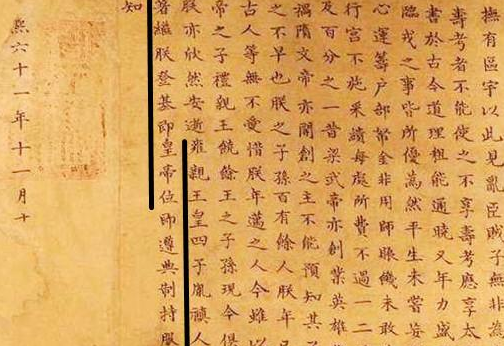 撫有區宇以此見亂臣賊子無非為
壽考者不能使之不享壽考應享太
書於古今道理粗能通曉又年力盛
臨戎之事皆所優為然平生未嘗妄
心運籌戶部帑金非用師賑饑未敢
行宮不施采繢每處所費不過一二
及百分之一昔梁武帝亦創業英雄
禍隋文帝亦開創之主不能預知其
之不早也朕之子孫百有餘人朕年
古人等無不愛惜朕年邁之人今雖以
帝之子禮親王饒餘王之子孫現今俱
朕亦欣然安逝雍親王皇四子胤禛人
著繼朕登基即皇帝位即遵典制持服
知
熙六十一年十一月十